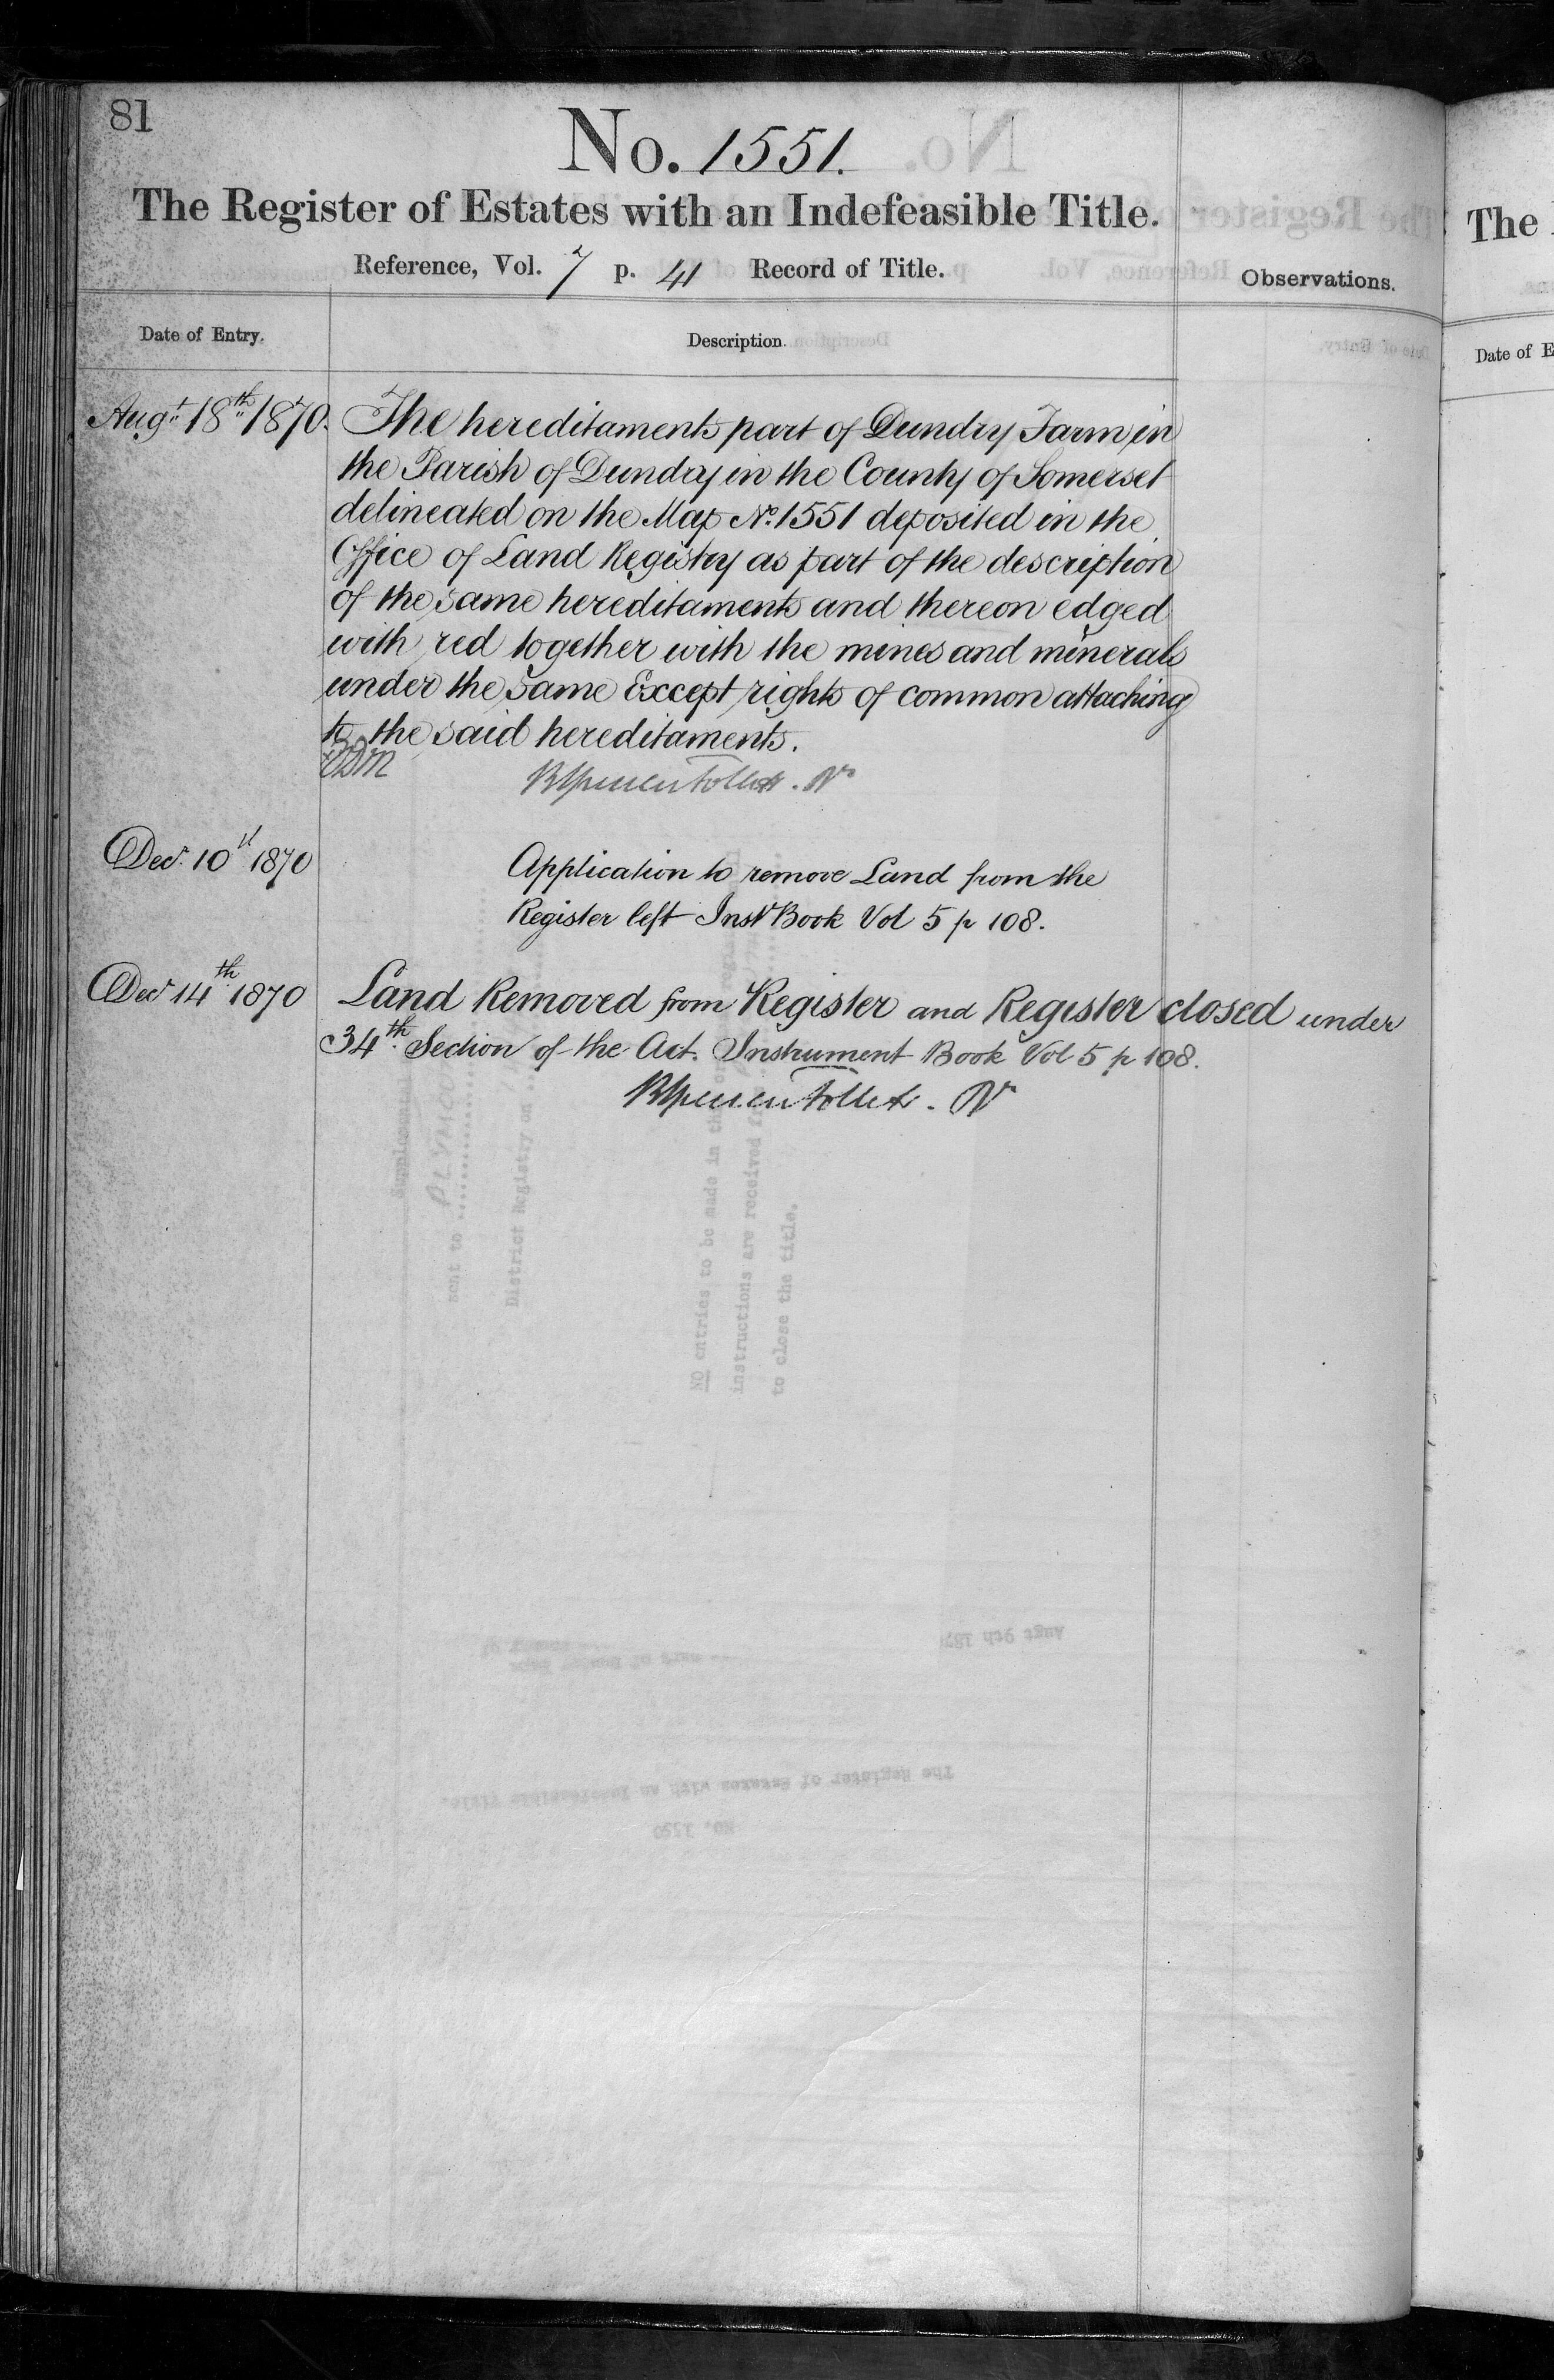 81
No. 1551.
The Register of Estates with an Indefeasible Title.
Reference, Vol. 7 p. 41 Record of Title.
Observations.
Date of Entry.
Description.
Augt. 18th 1870. The hereditaments part of Dundry Farm in
the Parish of Dundry in the County of Somerset
delineated on the Map No. 1551 deposited in the
Office of Land Registry as part of the description
of the same hereditaments and thereon edged
with red together with the mines and minerals
under the same Except rights of common attaching
to the said hereditaments.
Decr. 10th 1870 Application to remove Land from the
Register left Instt Book Vol 5 p 108.
Decr 14th 1870 Land Removed from Register and Register closed under
34th Section of the Act. Instrument Book Vol 5 p 108.
sent to
District Registry on
NO entries to be made in
instructions are received
to close the title.
Augt 9th 187
The Register of Estates with an Indefeasible Title.
The
Date of E